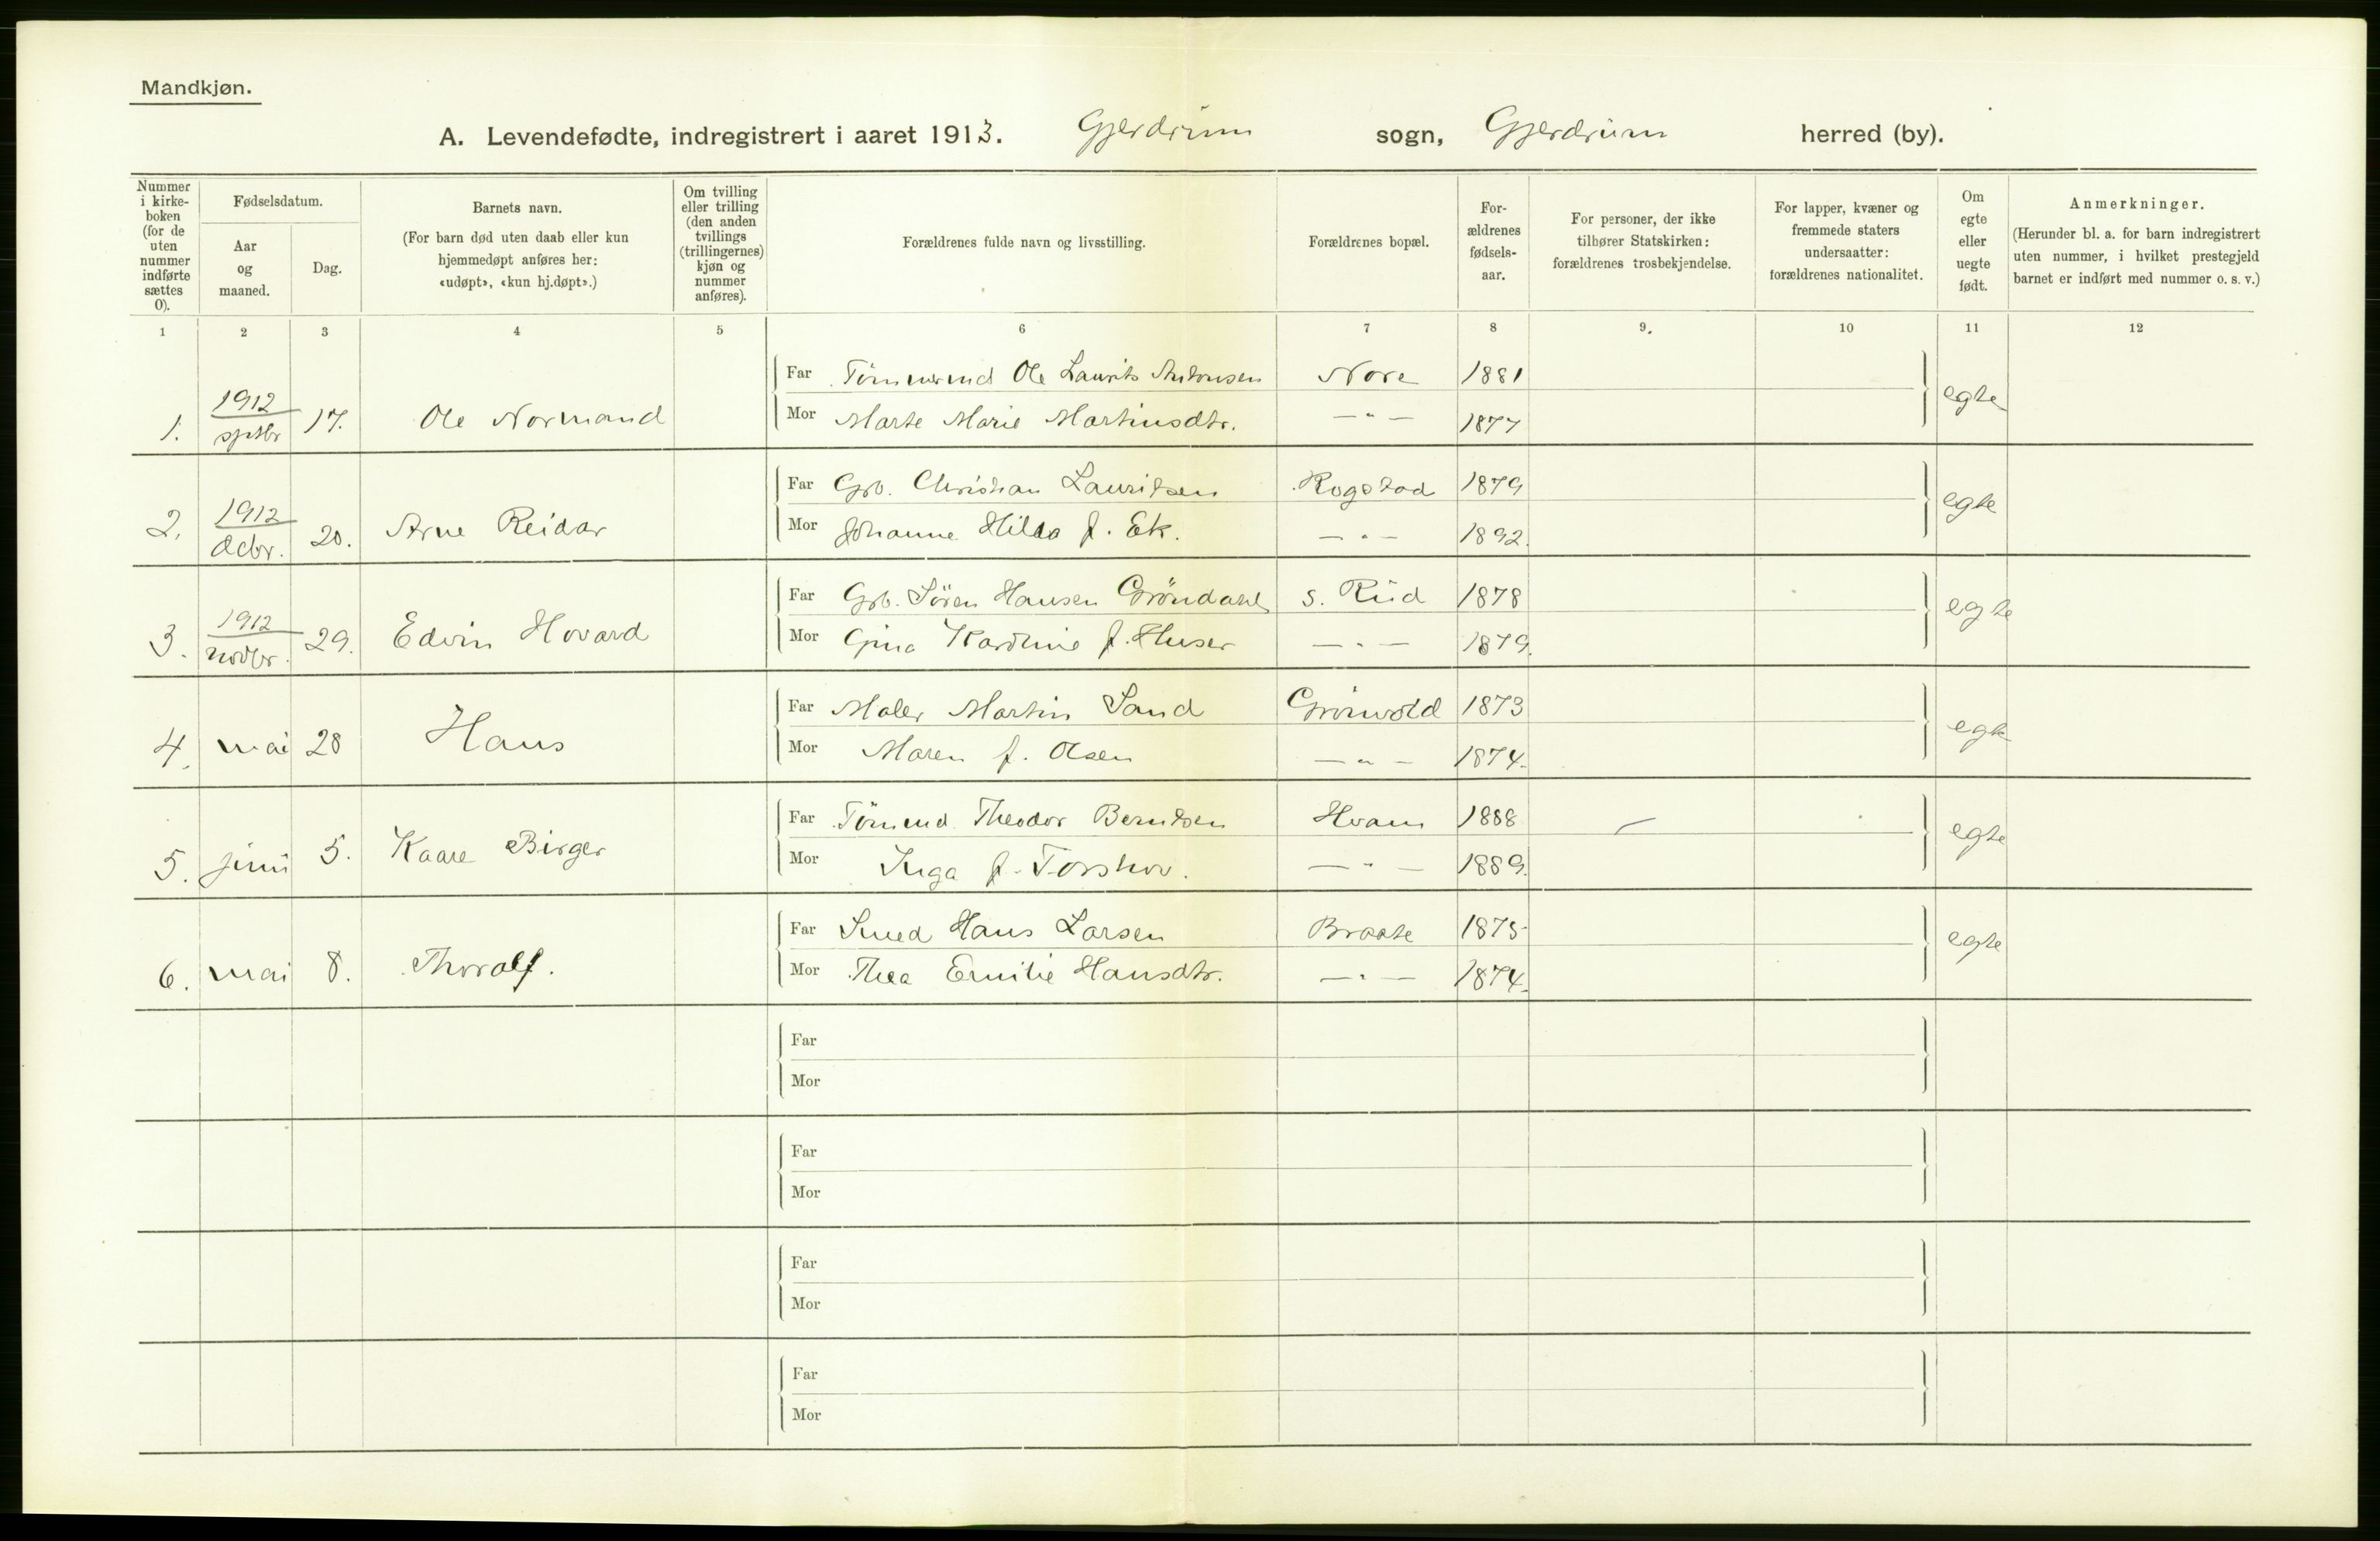 Mandkjøn.
A. Levendefødte, indregistrert i aaret 1913. Gjerdrum sogn, Gjerdrum herred (by).
Nummer i kirke-boken (for de uten nummer indførte sættes 0).
Fødselsdatum.
Aar og maaned.
Dag.
Barnets navn.
(For barn død uten daab eller kun hjemmedøpt anføres her: «udøpt», «kun hj.døpt».)
Om tvilling eller trilling (den anden tvillings (trillingernes) kjøn og nummer anføres).
Forældrenes fulde navn og livsstilling.
Forældrenes bopæl.
For-ældrenes fødsels-aar.
For personer, der ikke tilhører Statskirken: forældrenes trosbekjendelse.
For lapper, kvæner og fremmede staters undersaatter: forældrenes nationalitet.
Om egte eller uegte født.
Anmerkninger.
(Herunder bl. a. for barn indregistrert uten nummer, i hvilket prestegjeld barnet er indført med nummer o. s. v.)
1 2 3 4 5 6 7 8 9. 10 11 12
Far Tömmermd Ole Laurits Antonsen Nore 1881
1. 1912 sptbr 17. Ole Normand egte
Mor Marte Marie Martinsdtr. — " — 1877
Far Grb. Christian Lauritsen Rogstad 1879
2. 1912 dcbr. 20. Arne Reidar egte
Mor Johanne Hilda f. Ek. — " — 1892.
Far Grb. Sören Hansen Gröndahl s. Rud 1878
3. 1912 novbr. 29. Edvin Hovard egte
Mor Gina Karoline f. Huser — " — 1879.
Far Maler Martin Sand Grönvold 1873
4. mai 28 Hans egte
Mor Maren f. Olsen — " — 1874.
Far Tömmd. Theodor Berntsen Hvam 1888
5. juni 5. Kaare Birger egte
Mor Inga f. Torshov. — " — 1889.
Far Smed Hans Larsen Braate 1875
6. mai 8. Thoralf. egte
Mor Thea Emilie Hansdtr. — " — 1874.
Far
Mor
Far
Mor
Far
Mor
Far
Mor